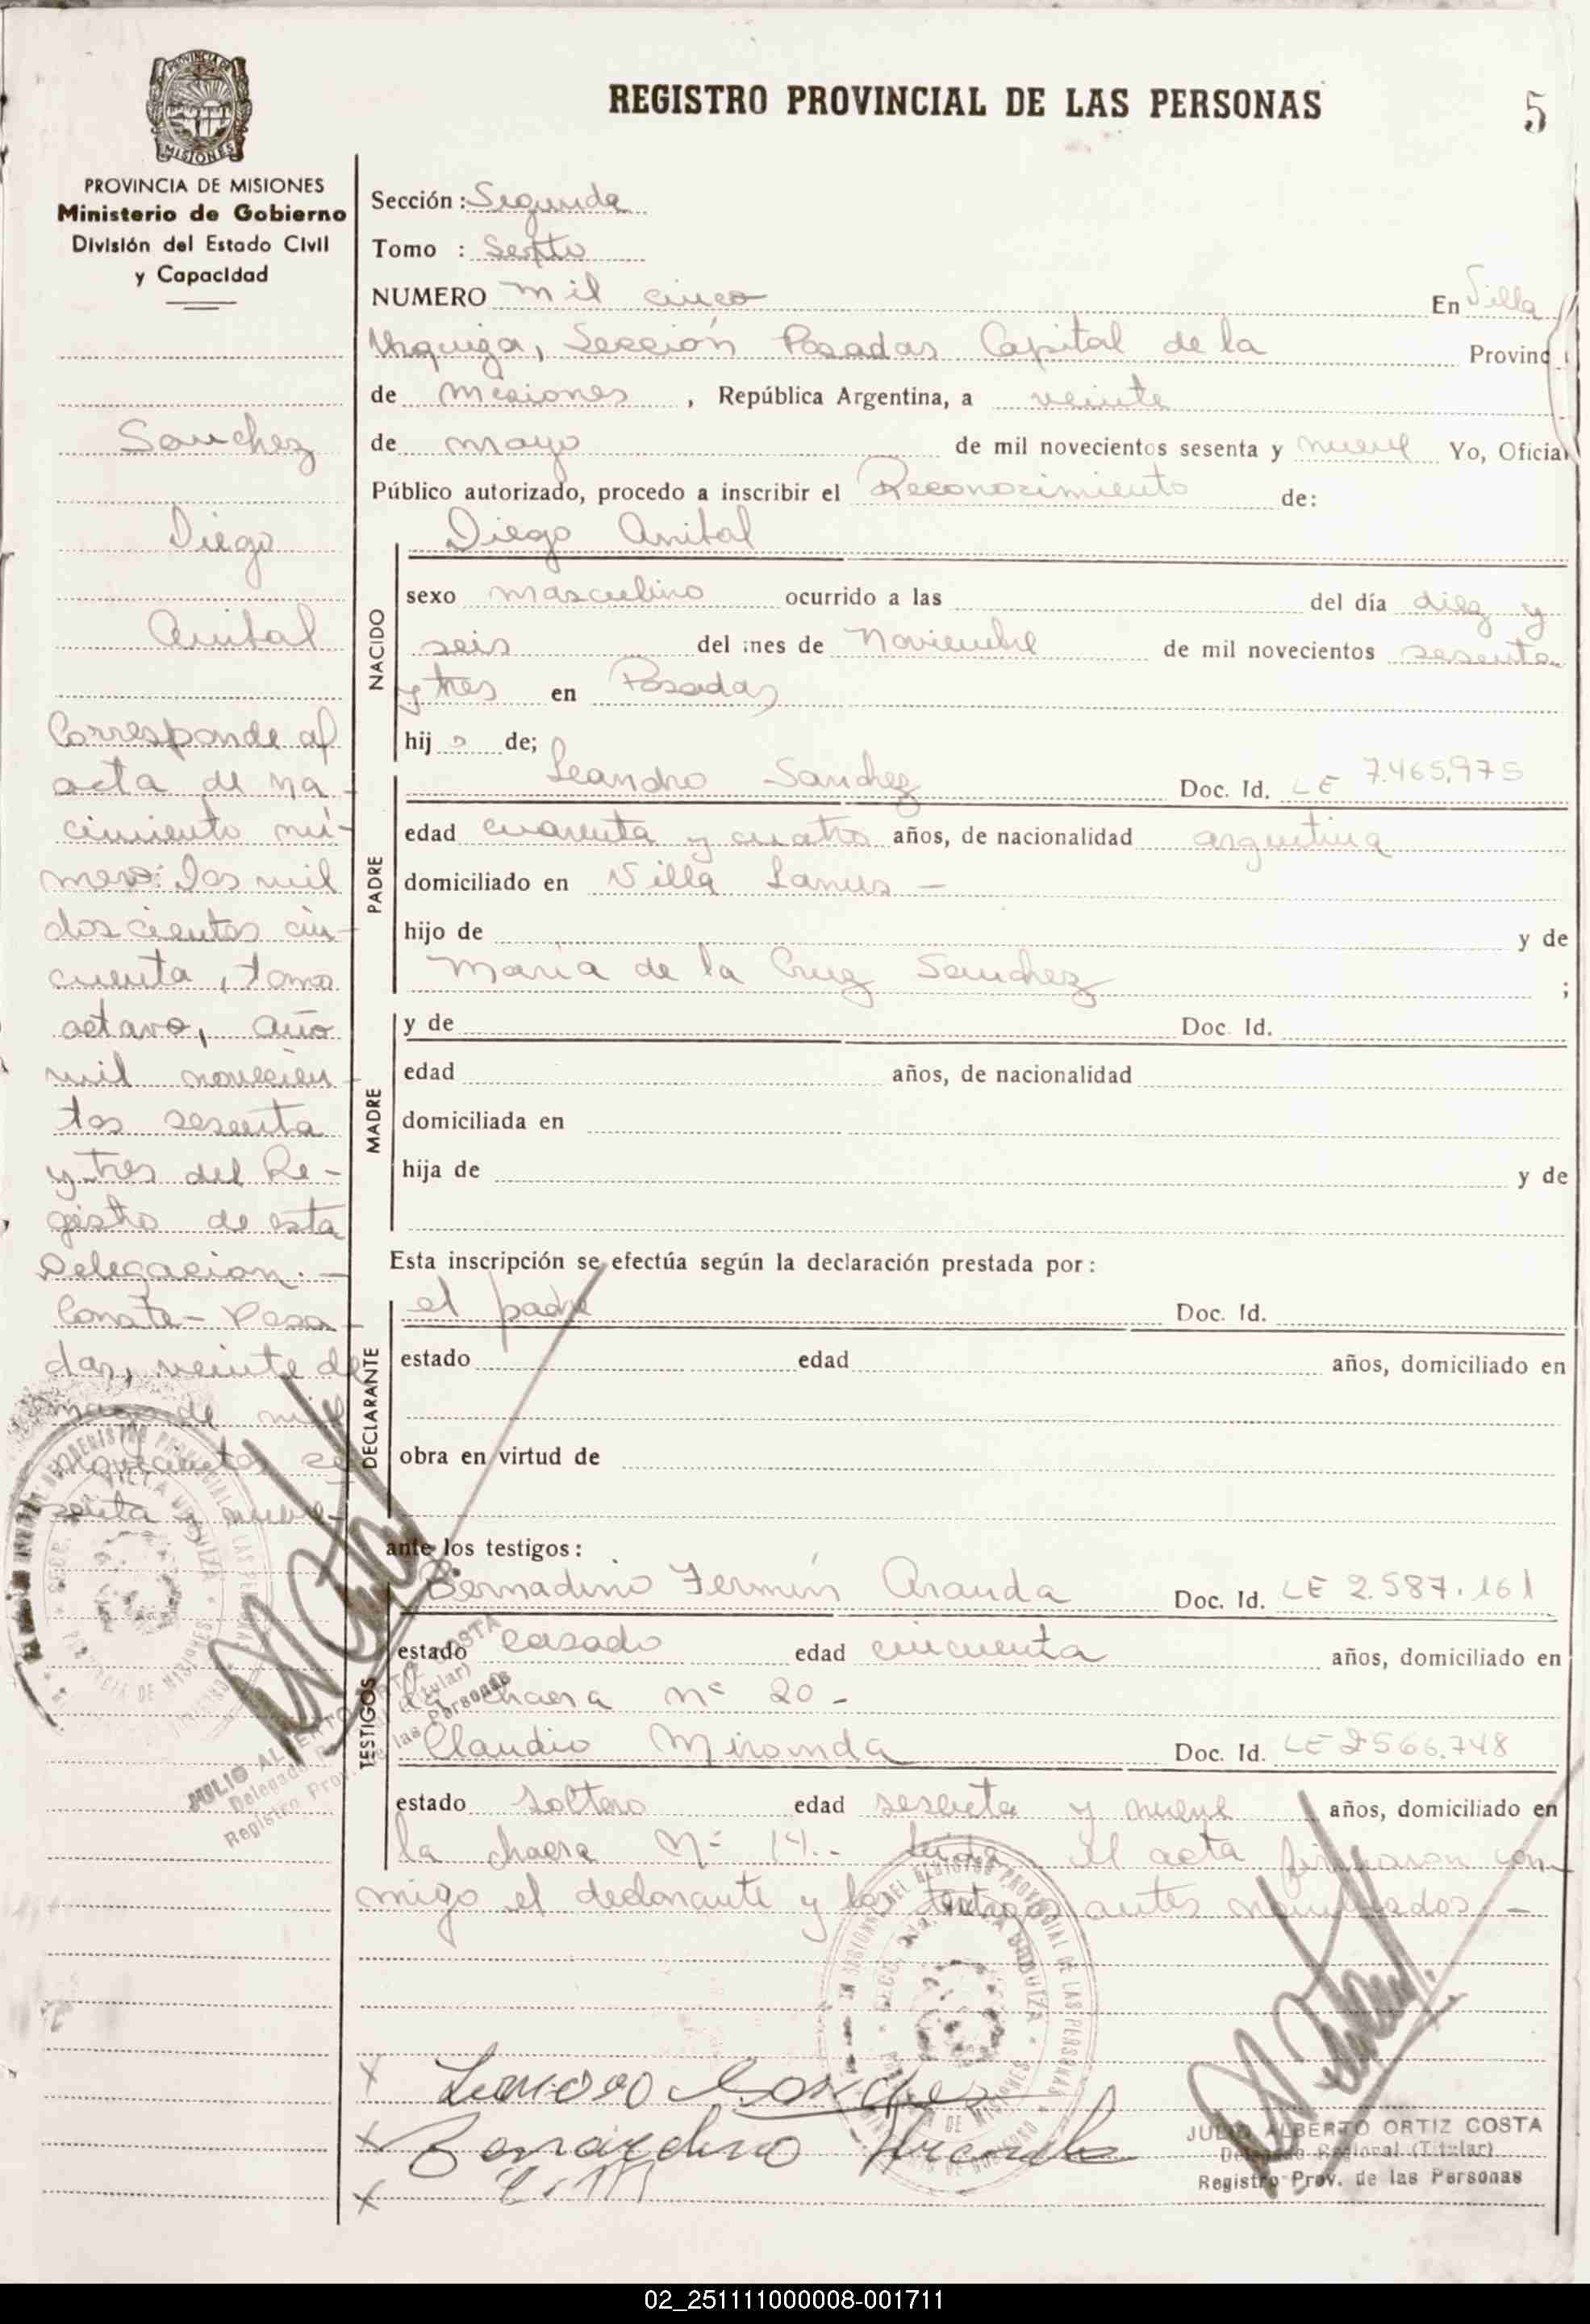 REGISTRO PROVINCIAL DE LAS PERSONAS
5
PROVINCIA DE MISIONES
MISIONES
PROVINCIA DE MISIONES
Ministerio de Gobierno
División del Estado Civil
y Capacidad
Sanchez
Diego
Anibal
Corresponde al
acta de na-
cimiento nú-
mero: dos mil
doscientos cin-
cuenta, tomo
octavo, año
mil novecien-
tos sesenta
y tres del Re-
gistro de esta
Delegacion.-
Conste- Posa-
das, veinte de
mayo de mil
novecientos se
senta y nueve-
JULIO ALBERTO ORTIZ COSTA
Delegado (Titular)
Registro Prov. de las Personas
Sección: Segunda
Tomo : Sexto
NUMERO mil cinco En Villa
Urquiza, Sección Posadas Capital de la Provinc
de Misiones, República Argentina, a veinte
de mayo de mil novecientos sesenta y nueve Yo, Oficial
Público autorizado, procedo a inscribir el Reconocimiento de:
NACIDO
Diego Anibal
sexo masculino ocurrido a las del día diez y
seis del mes de Noviembre de mil novecientos sesenta
y tres en Posadas
hijo de;
PADRE
Leandro Sanchez Doc. Id. LE 7.465.975
edad cuarenta y cuatro años, de nacionalidad argentina
domiciliado en Villa Lanus -
hijo de y de
Maria de la Cruz Sanchez ;
MADRE
y de Doc. Id.
edad años, de nacionalidad
domiciliada en
hija de y de
Esta inscripción se efectúa según la declaración prestada por:
DECLARANTE
el padre Doc. Id.
estado edad años, domiciliado en
obra en virtud de
ante los testigos:
TESTIGOS
Bernadino Fermín Aranda Doc. Id. LE 2.587.161
estado casado edad cincuenta años, domiciliado en
la chacra nº 20 -
Claudio Miranda Doc. Id. LE 2566.748
estado soltero edad sesenta y nueve años, domiciliado en
la chacra Nº 14.- Leída el acta firmaron con-
migo el declarante y los testigos antes nombrados -
JULIO ALBERTO ORTIZ COSTA
Delegado Regional (Titular)
Registro Prov. de las Personas
02_251111000008-001711